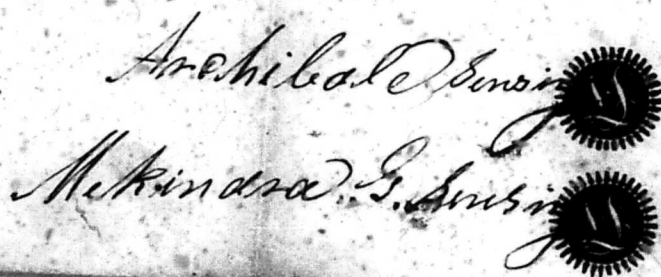 Archibald Sensing
Mekindra. G. Sensing